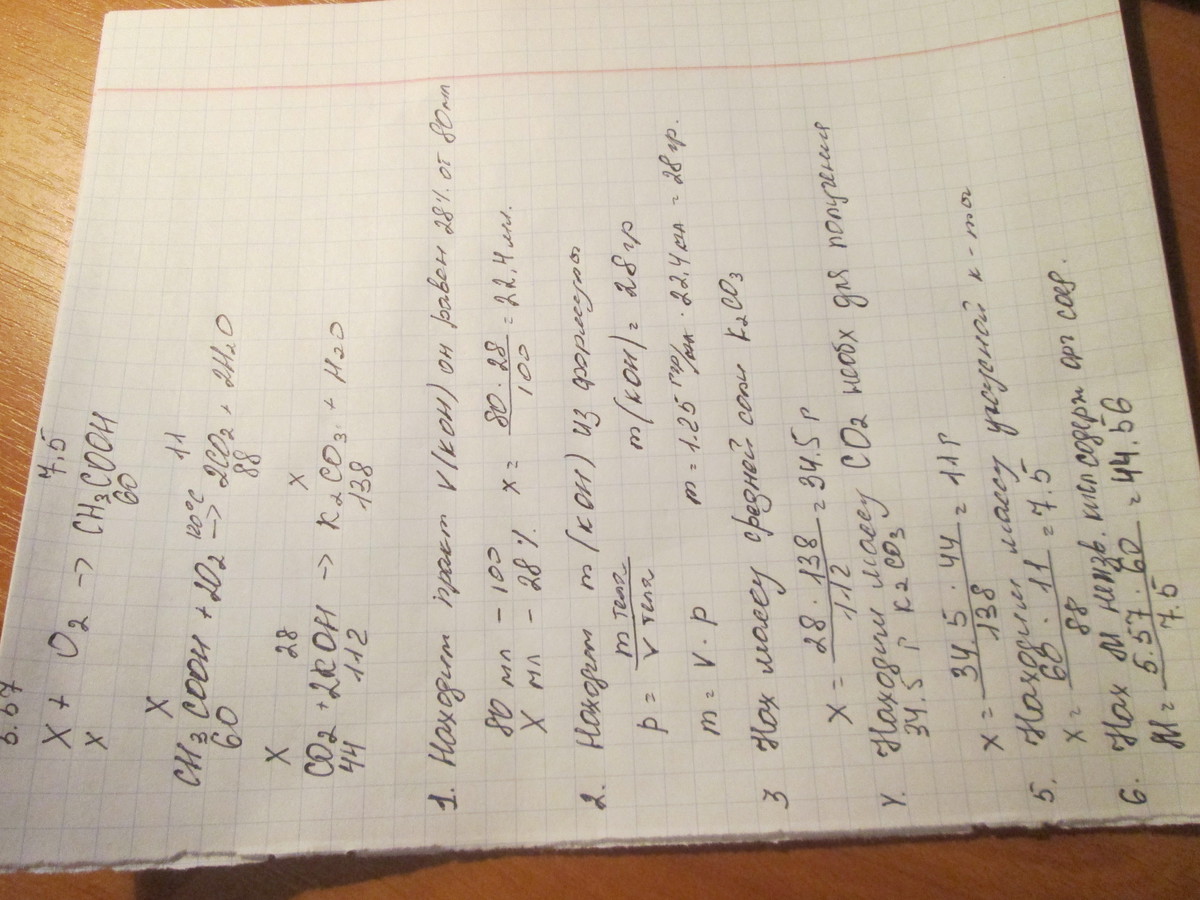 5.57 7,5
X + O2 → CH3COOH
x 60
X 11
CH3COOH + 2O2 120°C → 2CO2 + 2H2O
60 88
X 28 X
CO2 + 2KOH → K2CO3 + H2O
44 112 138
1. Находим практ V(KOH) он равен 28% от 80мл
80 мл - 100 x = 80 · 28 / 100 = 22,4 мл.
X мл - 28%
2. Находим m (KOH) из формулы
p = m тела / V тела m(KOH) = 28 гр
m = V · p m = 1.25 гр/мл · 22,4 мл = 28 гр.
3 Нах массу средней соли K2CO3
X = 28 · 138 / 112 = 34.5 г
4. Находим массу CO2 необх для получения
34.5 г K2CO3
X = 34,5 · 44 / 138 = 11 г
5. Находим массу уксусной к-ты
x = 60 · 11 / 88 = 7.5
6. Нах M неизв. кислсодерж орг соед.
M = 5.57 · 60 / 7.5 = 44.56